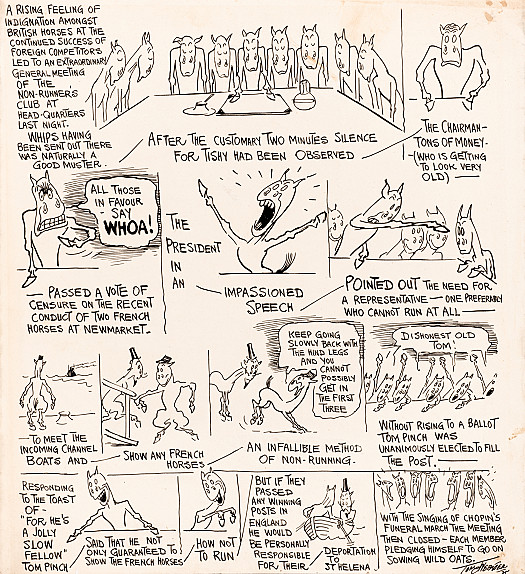 A RISING FEELING OF
INDIGNATION AMONGST
BRITISH HORSES AT THE
CONTINUED SUCCESS OF
FOREIGN COMPETITORS
LED TO AN EXTRAORDINARY
GENERAL MEETING
OF THE
NON-RUNNER'S
CLUB AT
HEAD-QUARTERS
LAST NIGHT.
WHIPS HAVING
BEEN SENT OUT THERE
WAS NATURALLY A
GOOD MUSTER.
AFTER THE CUSTOMARY TWO MINUTES SILENCE
FOR TISHY HAD BEEN OBSERVED
THE CHAIRMAN—
TONS OF MONEY—
(WHO IS GETTING
TO LOOK VERY
OLD)—
ALL THOSE
IN FAVOUR
SAY
WHOA!
—PASSED A VOTE OF
CENSURE ON THE RECENT
CONDUCT OF TWO FRENCH
HORSES AT NEWMARKET—
THE
PRESIDENT
IN
AN
IMPASSIONED
SPEECH
POINTED OUT THE NEED FOR
A REPRESENTATIVE—ONE PREFERABLY
WHO CANNOT RUN AT ALL—
—TO MEET THE
INCOMING CHANNEL
BOATS AND—
SHOW ANY FRENCH
HORSES
KEEP GOING
SLOWLY BACK WITH
THE HIND LEGS
AND YOU
CANNOT
POSSIBLY
GET IN
THE FIRST
THREE
AN INFALLIBLE METHOD
OF NON-RUNNING.
DISHONEST OLD
TOM!
WITHOUT RISING TO A BALLOT
TOM PINCH WAS
UNANIMOUSLY ELECTED TO FILL
THE POST.
RESPONDING
TO THE TOAST
OF—
"FOR HE'S
A JOLLY
SLOW
FELLOW"
TOM PINCH
SAID THAT HE NOT
ONLY GUARANTEED TO
SHOW THE FRENCH HORSES
HOW NOT
TO RUN
BUT IF THEY
PASSED
ANY WINNING
POSTS IN
ENGLAND
HE WOULD
BE PERSONALLY
RESPONSIBLE
FOR THEIR
DEPORTATION
TO
ST HELENA
WITH THE SINGING OF CHOPIN'S
FUNERAL MARCH THE MEETING
THEN CLOSED—EACH MEMBER
PLEDGING HIMSELF TO GO ON
SOWING WILD OATS.